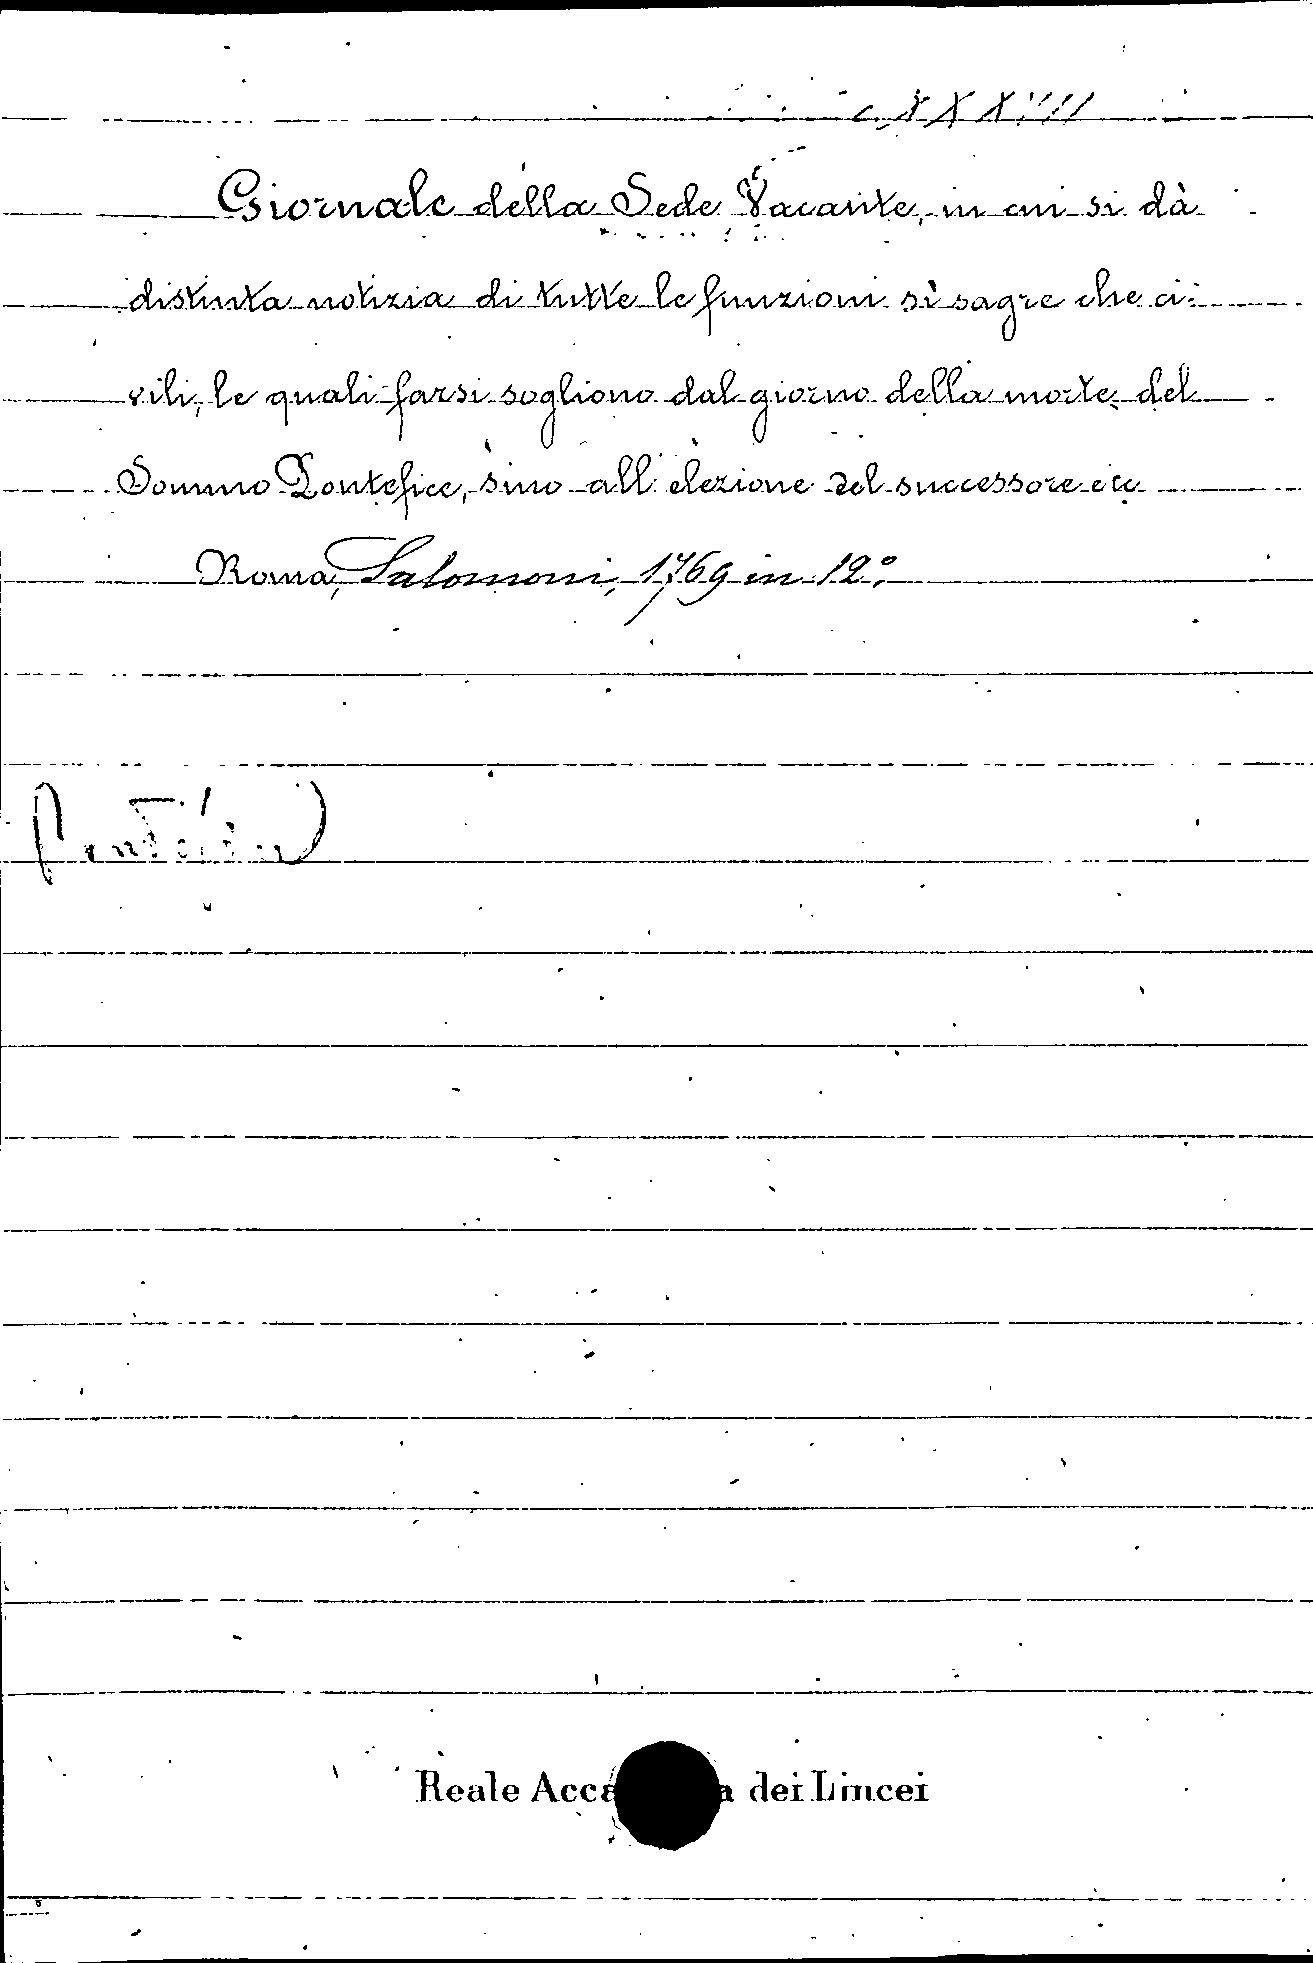 Giornale della Sede Vacante, in cui si dà
distinta notizia di tutte le funzioni sì sagre che ci-
vili, le quali farsi sogliono dal giorno della morte del
Sommo Pontefice, sino all'elezione del successore etc
Roma, Salomoni, 1769 in 12°.
Reale Acca a dei Lincei